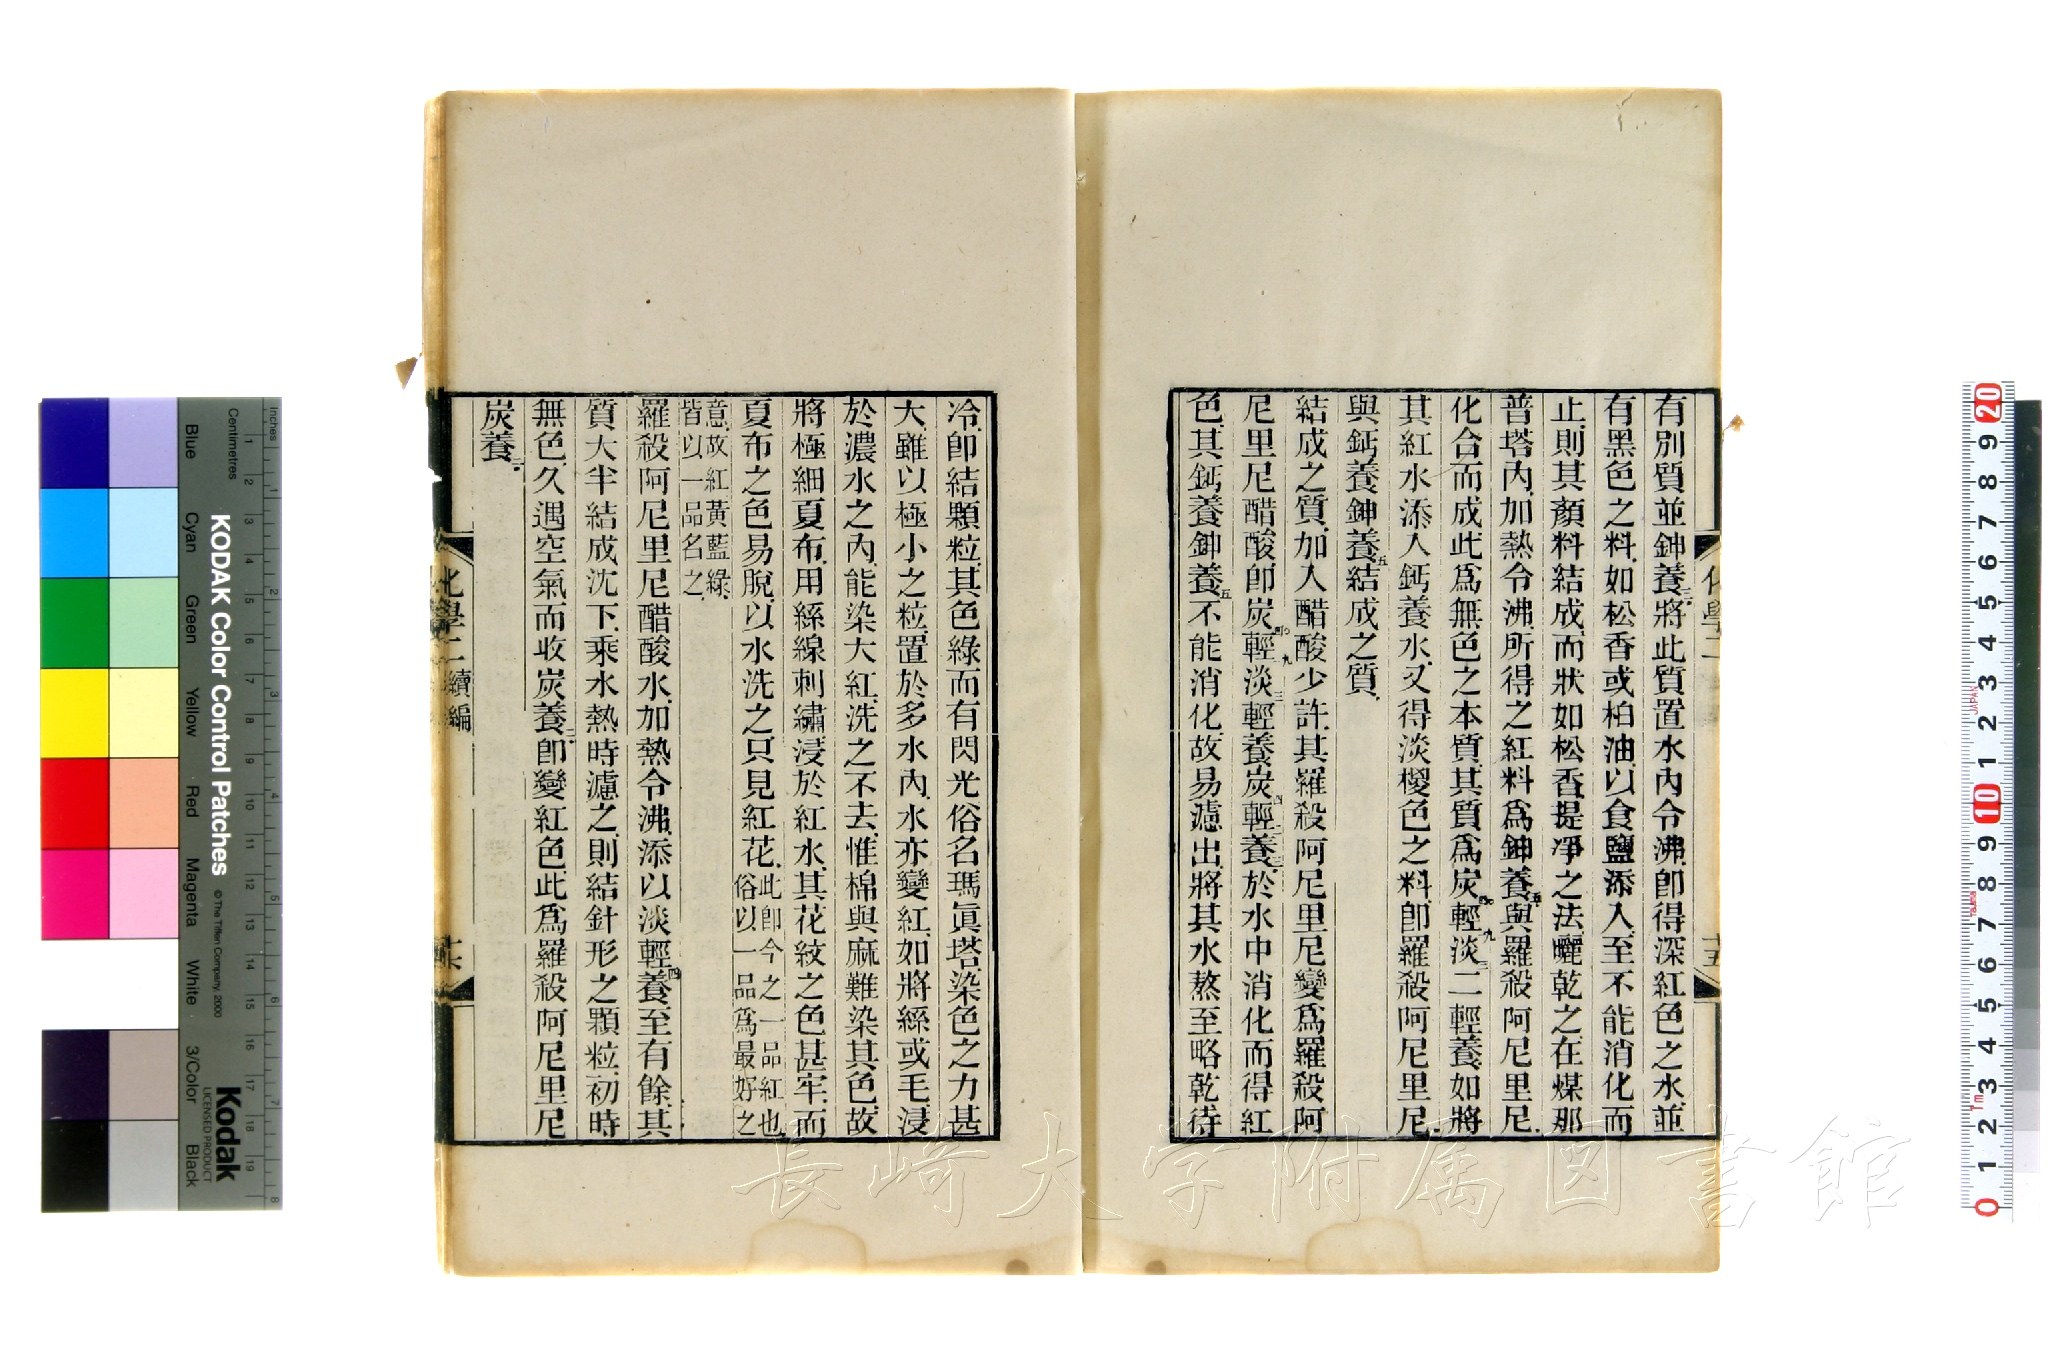 有別質並鉮養三將此質置水內令沸卽得深紅色之水並
有黑色之料如松香或柏油以食鹽添入至不能消化而
止則其顏料結成而狀如松香提凈之法曬乾之在煤那
普塔內加熱令沸所得之紅料爲鉮養五與羅殺阿尼里尼
化合而成此爲無色之本質其質爲炭四〇輕一九淡三二輕養如將
其紅水添入鈣養水又得淡椶色之料卽羅殺阿尼里尼
與鈣養鉮養五結成之質
結成之質加入醋酸少許其羅殺阿尼里尼變爲羅殺阿
尼里尼醋酸卽炭四〇輕一九淡三輕養炭四輕三養三於水中消化而得紅
色其鈣養鉮養五不能消化故易濾出將其水熬至略乾待
化學二
十五
冷卽結顆粒其色綠而有閃光俗名瑪眞塔染色之力甚
大雖以極小之粒置於多水內水亦變紅如將絲或毛浸
於濃水之內能染大紅洗之不去惟棉與麻難染其色故
將極細夏布用絲線刺繡浸於紅水其花紋之色甚牢而
夏布之色易脫以水洗之只見紅花此卽今之一品紅也俗以一品爲最好之
意故紅黃藍綠皆以一品名之
羅殺阿尼里尼醋酸水加熱令沸添以淡輕四養至有餘其
質大半結成沈下乘水熱時濾之則結針形之顆粒初時
無色久遇空氣而收炭養二卽變紅色此爲羅殺阿尼里尼
炭養二
化學二 續編
十六
長崎大学附属図書館
KODAK Color Control Patches
© The Tiffen Company, 2000
Kodak
LICENSED PRODUCT
Inches
Centimetres
Blue Cyan Green Yellow Red Magenta White 3/Color Black
1 2 3 4 5 6 7 8 9 10 11 12 13 14 15 16 17 18 19
1 2 3 4 5 6 7 8
20 9 8 7 6 5 4 3 2 1 10 9 8 7 6 5 4 3 2 1 0
JAPAN
1m